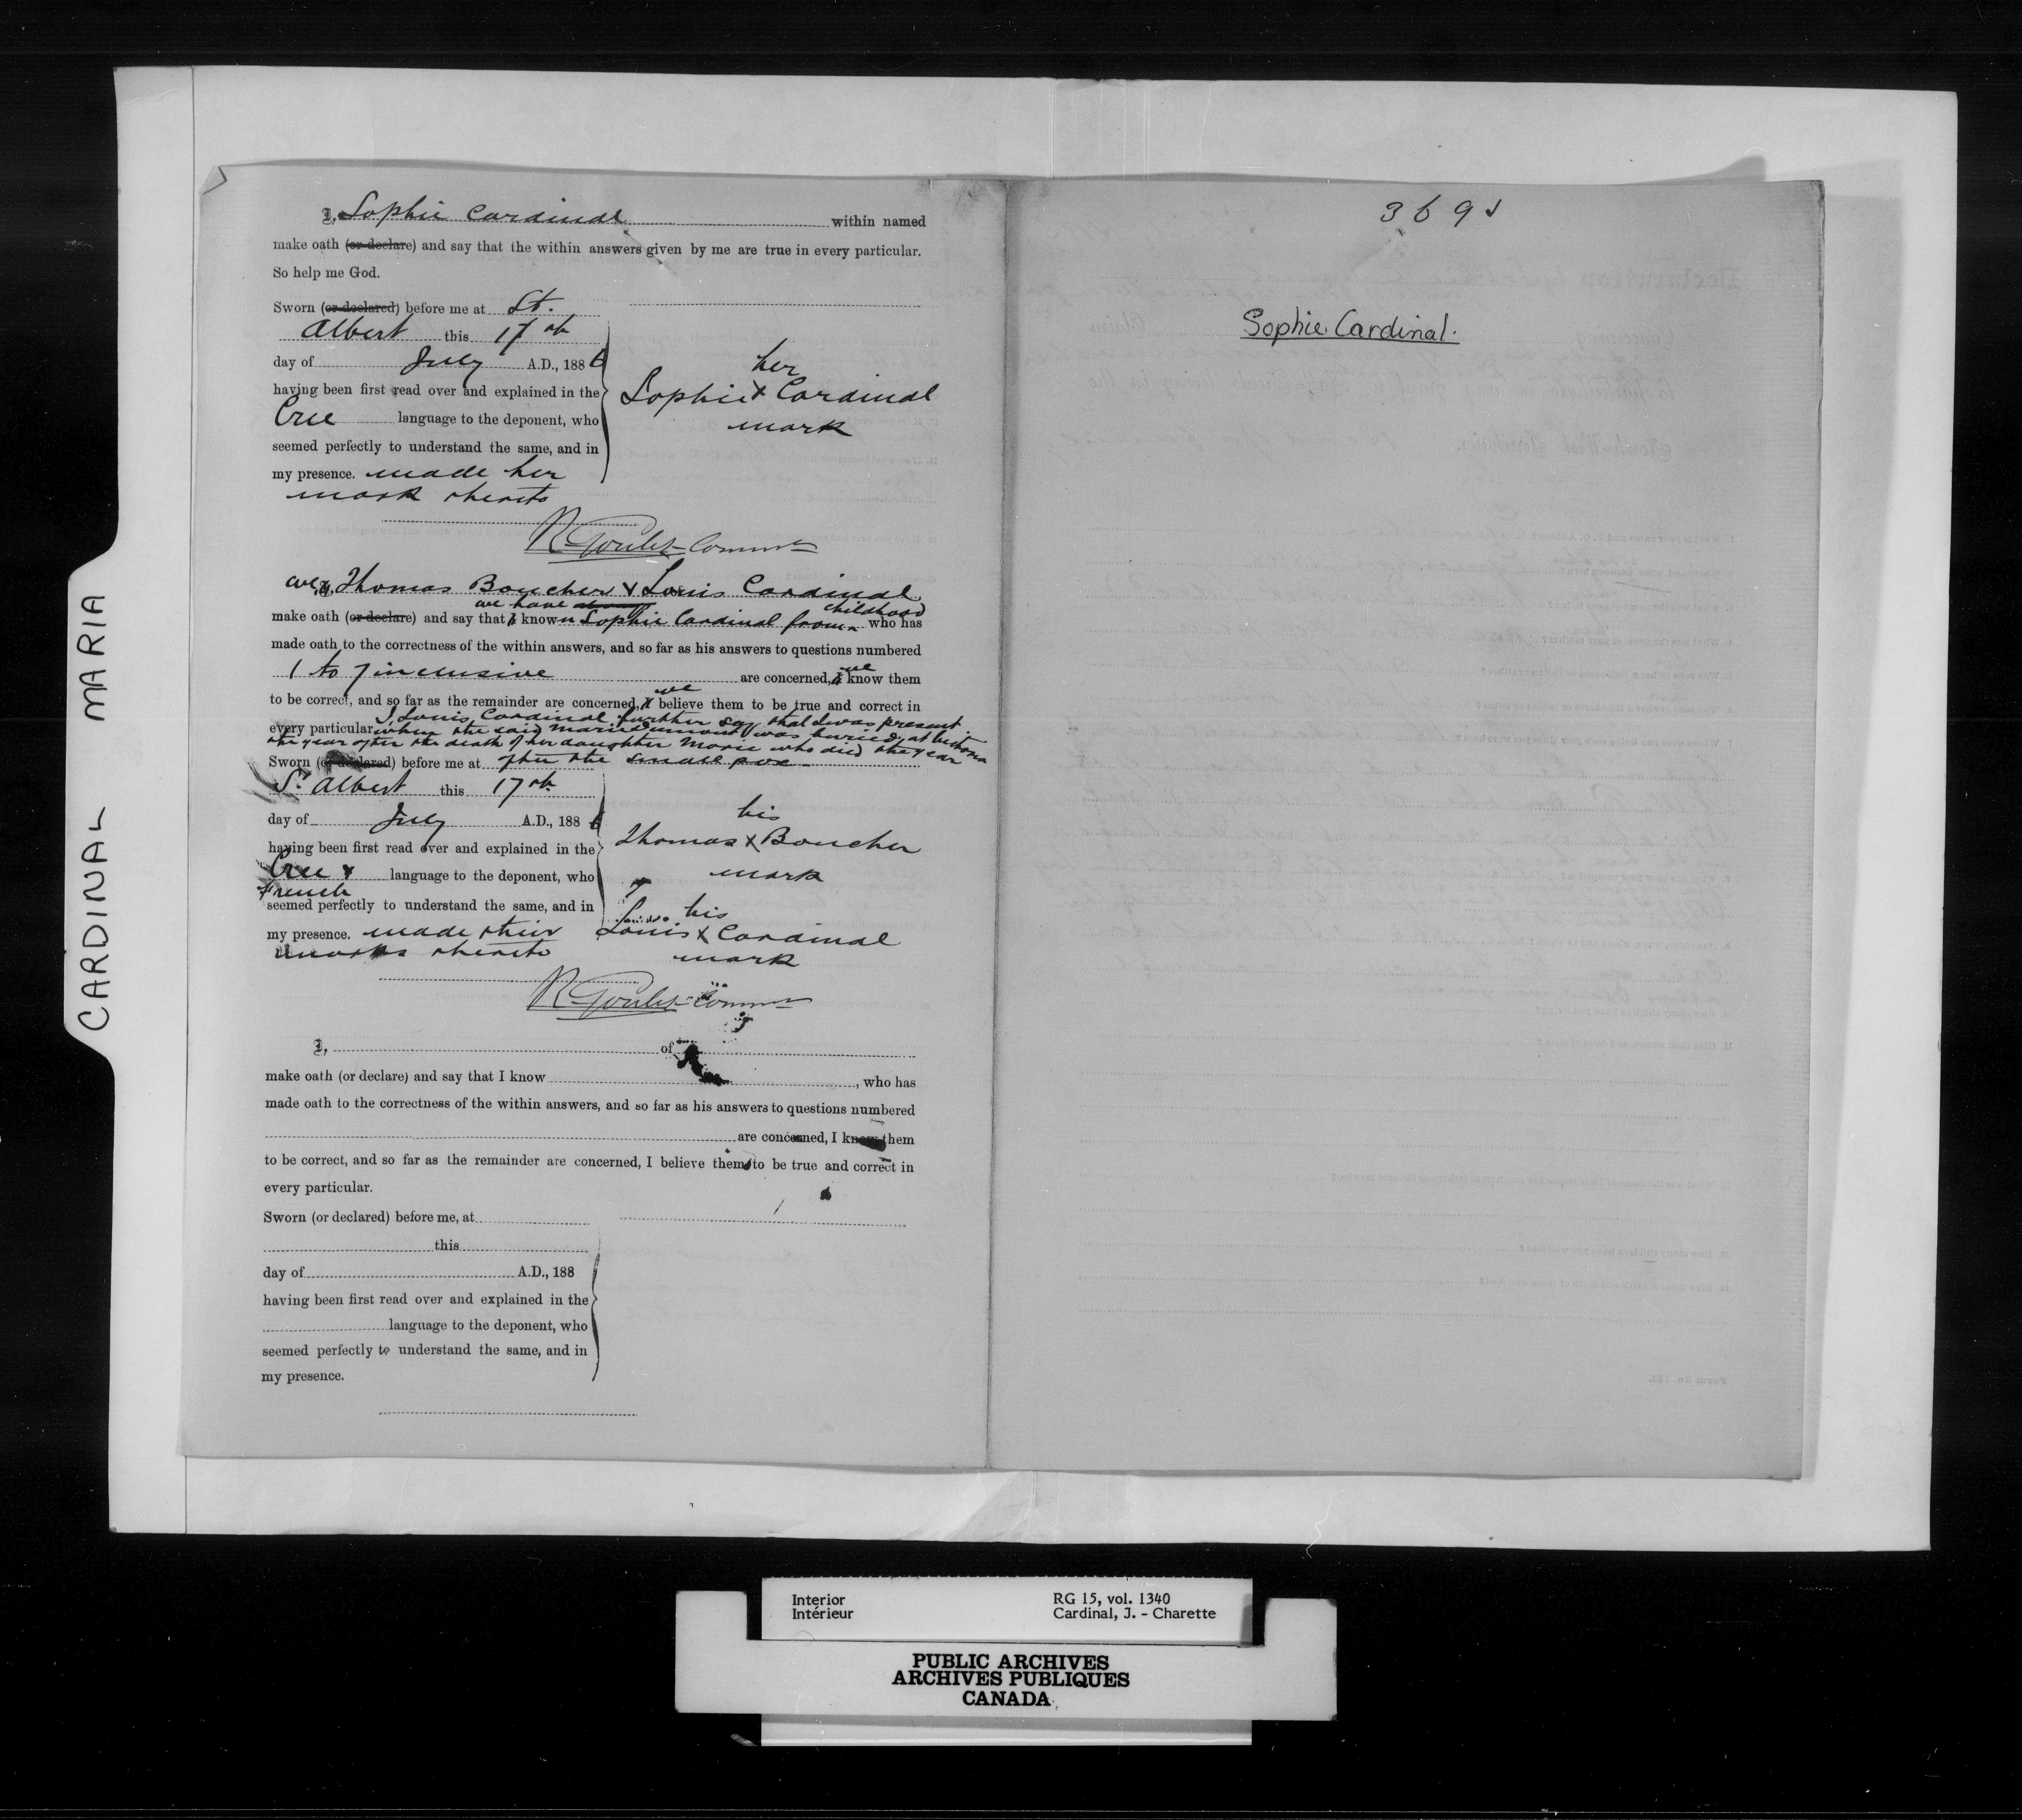 CARDINAL MARIA
I, Sophie Cardinal within named
make oath (or declare) and say that the within answers given by me are true in every particular.
So help me God.
Sworn (or declared) before me at St.
Albert this 17th
day of July A.D., 1886
having been first read over and explained in the
Cree language to the deponent, who
seemed perfectly to understand the same, and in
my presence. made her
mark thereto
her
Sophie X Cardinal
mark
R Goulet Commr
We, I, Thomas Boucher & Louis Cardinal
we have childhood
make oath (or declare) and say that I known Sophie Cardinal from who has
made oath to the correctness of the within answers, and so far as his answers to questions numbered
1 to 7 inclusive are concerned, I we know them
to be correct, and so far as the remainder are concerned, I we believe them to be true and correct in
I, Louis Cardinal further say that I was present
every particular when the said Marie Dumont was buried, at
the year after the death of her daughter Marie who died the year
Sworn (or declared) before me at after the small pox
St Albert this 17th
day of July A.D., 1886
having been first read over and explained in the
Cree & language to the deponent, who
French
seemed perfectly to understand the same, and in
my presence. made their
marks thereto
his
Thomas X Boucher
mark
his
Louis X Cardinal
mark
R Goulet Commr
I, of
make oath (or declare) and say that I know , who has
made oath to the correctness of the within answers, and so far as his answers to questions numbered
are concerned, I know them
to be correct, and so far as the remainder are concerned, I believe them to be true and correct in
every particular.
Sworn (or declared) before me, at
this
day of A.D., 188
having been first read over and explained in the
language to the deponent, who
seemed perfectly to understand the same, and in
my presence.
369
Sophie Cardinal.
Interior RG 15, vol. 1340
Intérieur Cardinal, J. - Charette
PUBLIC ARCHIVES
ARCHIVES PUBLIQUES
CANADA